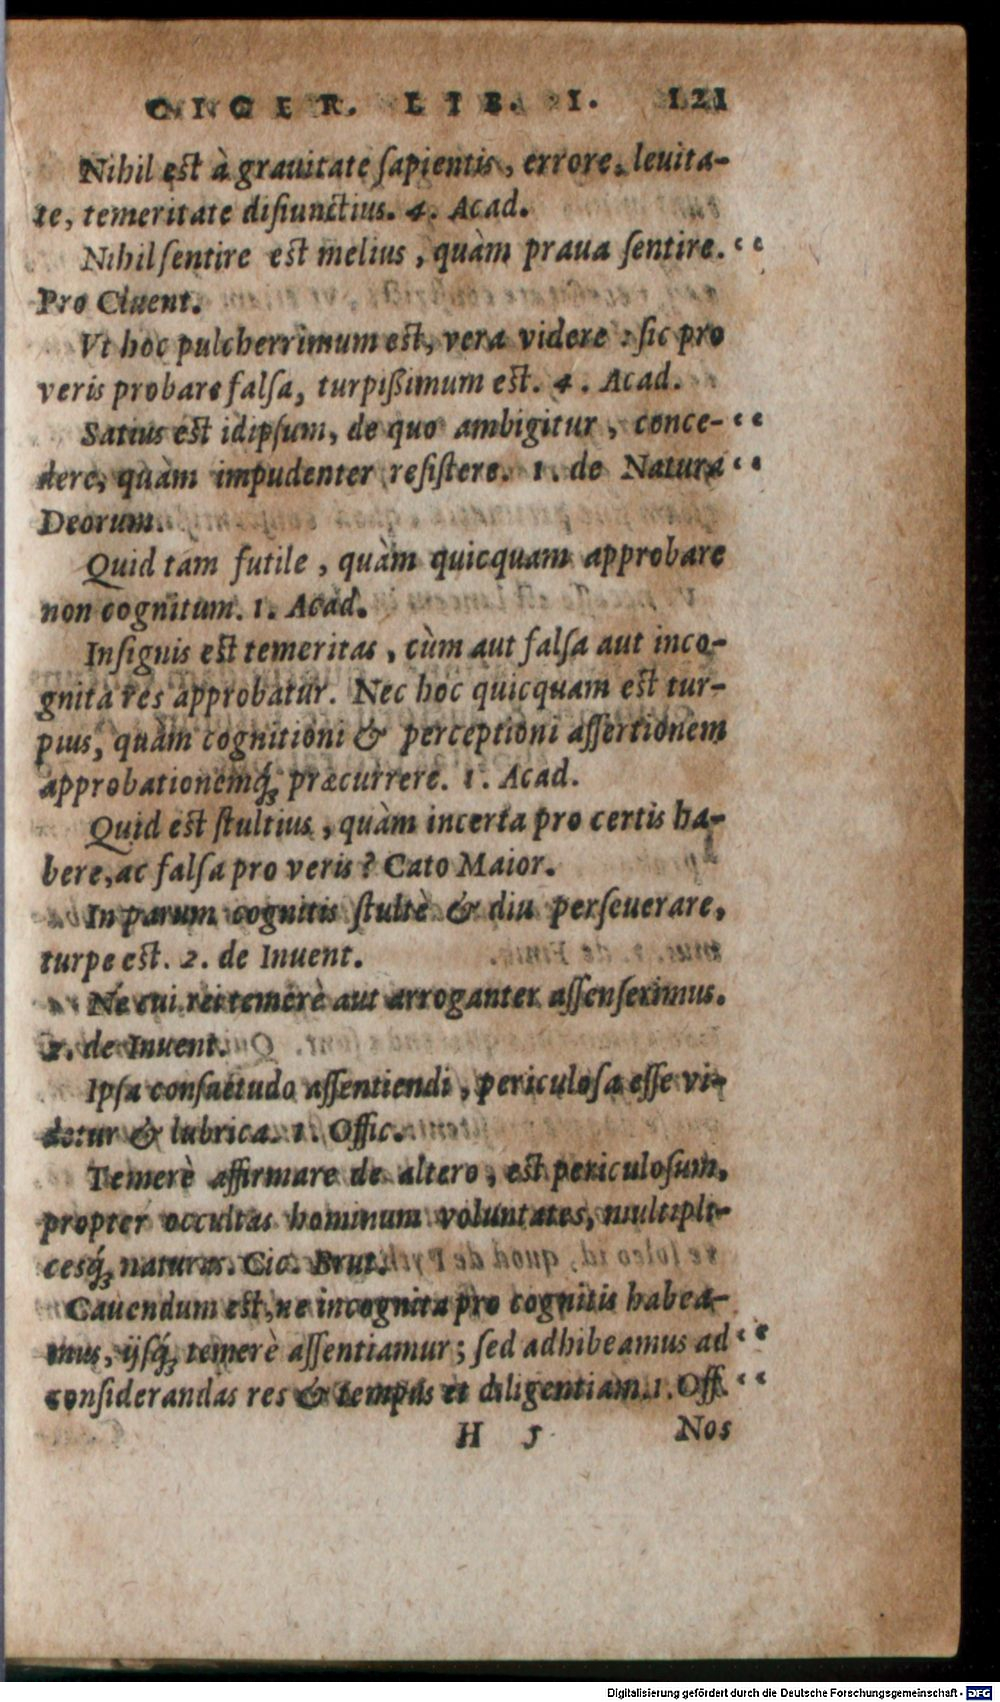 CICER. LIB. I. 121
Nihil est à grauitate sapientis, errore, leuita-
te, temeritate disiunctius. 4. Acad.
Nihil sentire est melius, quàm praua sentire. “
Pro Cluent.
Vt hoc pulcherrimum est, vera videre : sic pro
veris probare falsa, turpißimum est. 4. Acad.
Satius est idipsum, de quo ambigitur, conce- “
dere, quàm impudenter resistere. 1. de Natura “
Deorum.
Quid tam futile, quàm quicquam approbare
non cognitum. 1. Acad.
Insignis est temeritas, cùm aut falsa aut inco-
gnita res approbatur. Nec hoc quicquam est tur-
pius, quàm cognitioni & perceptioni assertionem
approbationemq́; præcurrere. 1. Acad.
Quid est stultius, quàm incerta pro certis ha-
bere, ac falsa pro veris? Cato Maior.
In parum cognitis stultè & diu perseuerare,
turpe est. 2. de Inuent.
Ne cui rei temerè aut arroganter assenserimus.
2. de Inuent.
Ipsa consuetudo assentiendi, periculosa esse vi-
detur & lubrica. 1. Offic.
Temerè affirmare de altero, est periculosum,
propter occultas hominum voluntates, multipli-
cesq́; naturas. Cic. Brut.
Cauendum est, ne incognita pro cognitis habea-
mus, ijsq́; temerè assentiamur; sed adhibeamus ad “
considerandas res & tempus et diligentiam. 1. Off. “
H 5 Nos
Digitalisierung gefördert durch die Deutsche Forschungsgemeinschaft - DFG